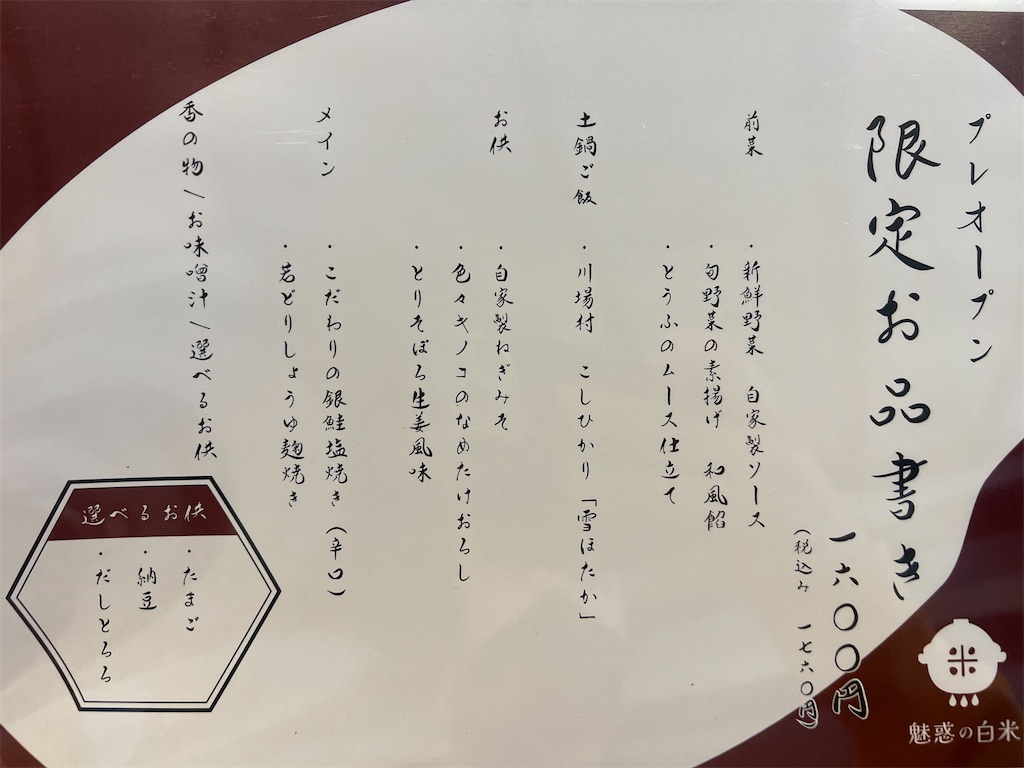 プレオープン
限定お品書き
一六〇〇円
(税込み 一七六〇円)
前菜
・新鮮野菜 自家製ソース
・旬野菜の素揚げ 和風餡
・とうふのムース仕立て
土鍋ご飯
・川場村 こしひかり「雪ほたか」
お供
・自家製ねぎみそ
・色々キノコのなめたけおろし
・とりそぼろ生姜風味
メイン
・こだわりの銀鮭塩焼き(辛口)
・若どりしょうゆ麹焼き
香の物/お味噌汁/選べるお供
選べるお供
・たまご
・納豆
・だしとろろ
米
魅惑の白米